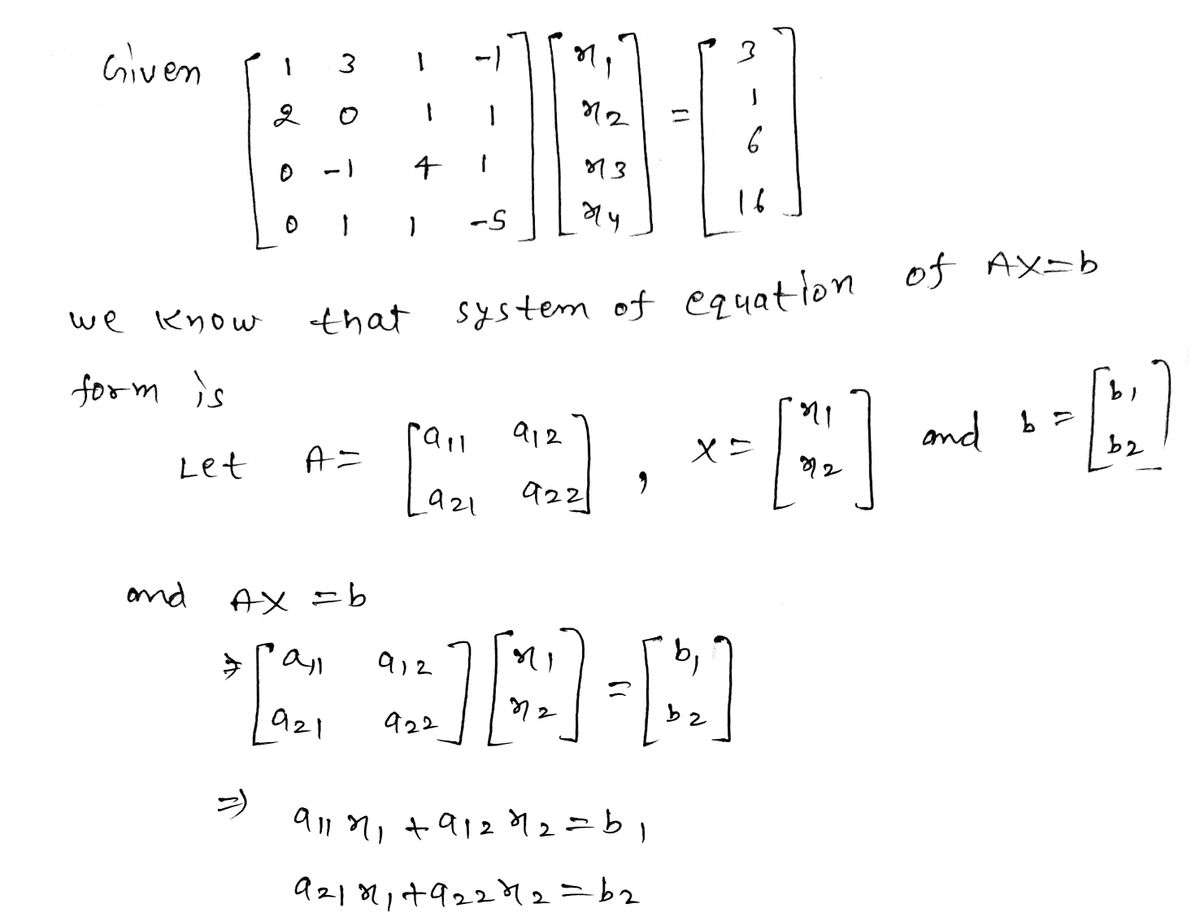 Given [1 3 1 -1; 2 0 1 1; 0 -1 4 1; 0 1 1 -5] [x1; x2; x3; x4] = [3; 1; 6; 16]
we know that system of equation of AX=b
form is
Let A= [a11 a12; a21 a22] , X= [x1; x2] and b = [b1; b2]
and AX =b
⇒ [a11 a12; a21 a22] [x1; x2] = [b1; b2]
⇒ a11 x1 + a12 x2 = b1
a21 x1 + a22 x2 = b2